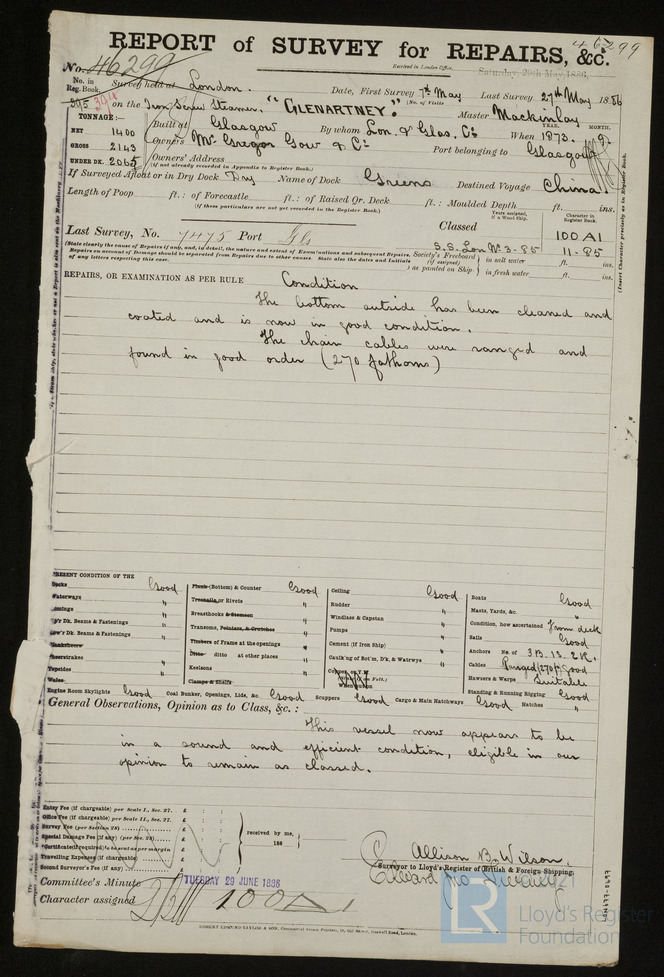 46299
REPORT of SURVEY for REPAIRS, &c.
Received in London Office, Saturday, 29th May, 1886,
No. 46299
No. in Reg. Book. Survey held at London. Date, First Survey 7th May Last Survey 27th May 1886
(No. of Visits
395 394 on the Iron Screw Steamer, "GLENARTNEY." Master Mackinlay
TONNAGE:—
Built at Glasgow By whom Lon. & Glas. Co When 1873. YEAR. MONTH. 9.
NET 1400
Owners McGregor Gow & Co Port belonging to Glasgow
GROSS 2143
Owners' Address
UNDER DK. 2065
(If not already recorded in Appendix to Register Book.)
If Surveyed Afloat or in Dry Dock Dry Name of Dock Greens Destined Voyage China.
Length of Poop ft.: of Forecastle ft.: of Raised Qr. Deck ft.: Moulded Depth ft. ins.
(If these particulars are not yet recorded in the Register Book.)
Years assigned, if a Wood Ship. Character in Register Book.
Last Survey, No. 7475 Port Gls Classed 100 A1
S.S. Lon No. 3-85 11-85
(State clearly the cause of Repairs if any, and, in detail, the nature and extent of Examinations and subsequent Repairs.
Repairs on account of Damage should be separated from Repairs due to other causes. State also the dates and Initials
of any letters respecting this case.
Society's Freeboard (if assigned) as painted on Ship. in salt water ft. ins.
in fresh water ft. ins.
(Insert Character precisely as in Register Book.
REPAIRS, OR EXAMINATION AS PER RULE Condition
The bottom outside has been cleaned and
coated and is now in good condition.
The chain cables were ranged and
found in good order (270 fathoms)
PRESENT CONDITION OF THE
Decks Good
Waterways "
Comings "
Up'r Dk. Beams & Fastenings "
Low'r Dk. Beams & Fastenings "
Planksheers "
Sheerstrakes "
Topsides "
Wales "
Plank (Bottom) & Counter Good
Treenails or Rivets "
Breasthooks & Stemson "
Transoms, Pointers, & Crutches "
Timbers of Frame at the openings "
Ditto ditto at other places "
Keelsons "
Clamps & Shelfs
Ceiling Good
Rudder "
Windlass & Capstan "
Pumps "
Cement (if Iron Ship) "
Caulk'ng of Bot'm, D'k, & Watrwys "
Copper, or Y.M.
When put on
Boats Good
Masts, Yards, &c. "
Condition, how ascertained from deck
Sails Good
Anchors No. of 3B. 1S. 2K.
Cables Ranged 270f good
Hawsers & Warps Suitable
Standing & Running Rigging Good
Engine Room Skylights Good Coal Bunker, Openings, Lids, &c. Good Scuppers Good Cargo & Main Hatchways Good Hatches "
General Observations, Opinion as to Class, &c. :
This vessel now appears to be
in a sound and efficient condition, eligible in our
opinion to remain as classed.
Entry Fee (if chargeable) per Scale I., Sec. 27. £ : :
Office Fee (if chargeable) per Scale II., Sec. 27. £ : :
Survey Fee (per Section 28) £ : :
Special Damage Fee (if any) (per Sec. 28) £ : :
Certificate (if required) to be sent as per margin £
Travelling Expenses (if chargeable) £
Second Surveyor's Fee (if any) £
received by me,
188
C. Allison B. Wilson,
Surveyor to Lloyd's Register of British & Foreign Shipping.
Committee's Minute TUESDAY 29 JUNE 1886
Character assigned 100 A1
ROBERT EDMUND TAYLOR & SON,
LR
Lloyd's Register
Foundation